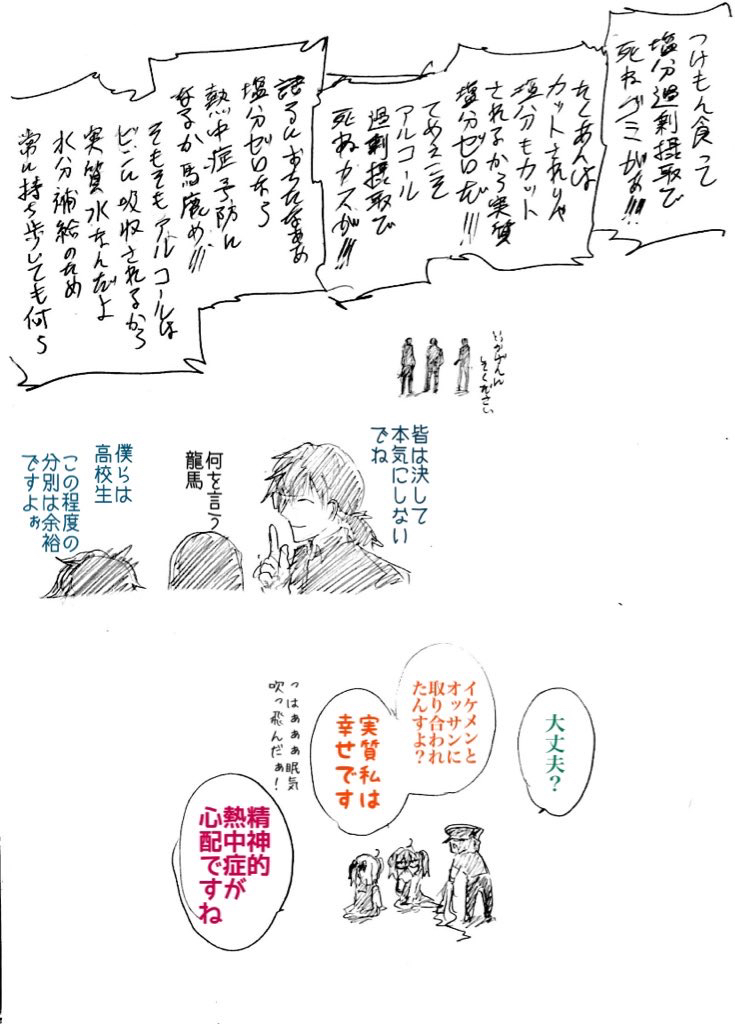 つけもん食って
塩分過剰摂取で
死ねゴミがぁ!!!
たくあんは
カットされりゃ
塩分もカット
されるから実質
塩分ゼロだ!!!
てめえこそ
アルコール
過剰摂取で
死ぬカスが!!!
語るにおちたなぁぁ
塩分ゼロなら
熱中症予防に
なるか馬鹿め!!!
そもそもアルコールは
ビンに吸収されるから
実質水なんだよ
水分補給のため
常に持ち歩しても何ら
いいかげんに
してください
皆は決して
本気にしない
でね
何を言う
龍馬
僕らは
高校生
この程度の
分別は余裕
ですよぉ
大丈夫?
イケメンと
オッサンに
取り合われ
たんすよ?
実質私は
幸せです
っはぁぁぁ眠気
吹っ飛んだぁ!
精神的
熱中症が
心配ですね